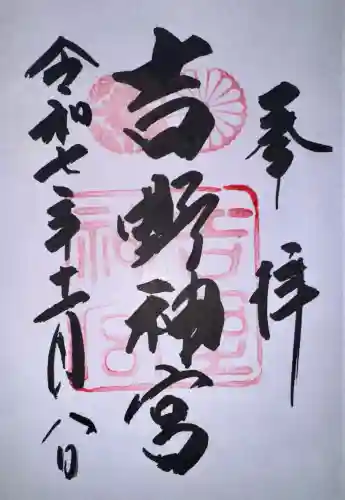 奉拝
吉野神宮
令和七年十一月八日